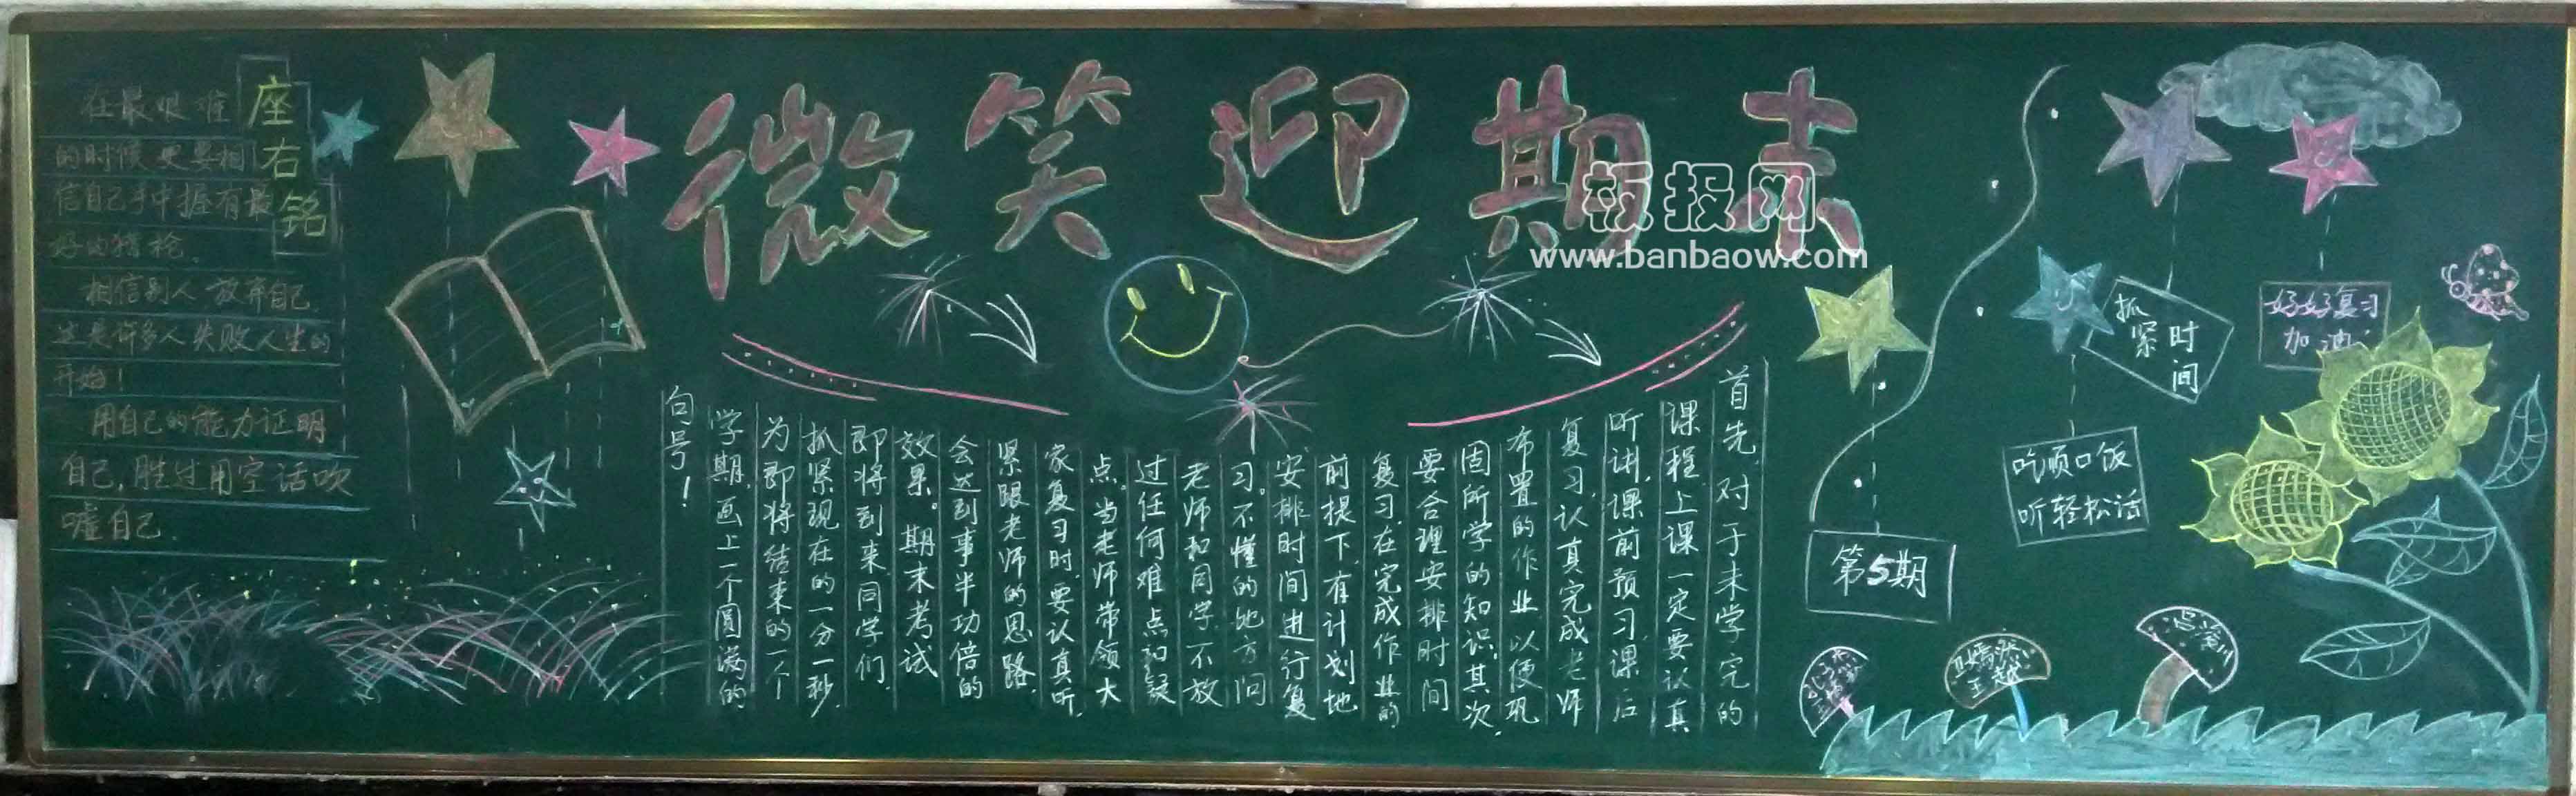 微笑迎期末
板报网
www.banbaow.com
座右铭
在最艰难
的时候更要相
信自己手中握有最
好的猎枪。
相信别人放弃自己,
这是许多人失败人生的
开始!
用自己的能力证明
自己,胜过用空话吹
嘘自己.
首先,对于未学完的
课程上课一定要认真
听讲,课前预习,课后
复习,认真完成老师
布置的作业,以便巩
固所学的知识.其次,
要合理安排时间
复习,在完成作业的
前提下,有计划地
安排时间进行复
习。不懂的地方问
老师和同学,不放
过任何难点和疑
点。当老师带领大
家复习时,要认真听,
紧跟老师的思路,
会达到事半功倍的
效果。期末考试
即将到来,同学们,
抓紧现在的一分一秒,
为即将结束的一个
学期,画上一个圆满的
句号!
抓紧时间
好好复习
加油!
吃顺口饭
听轻松话
第5期